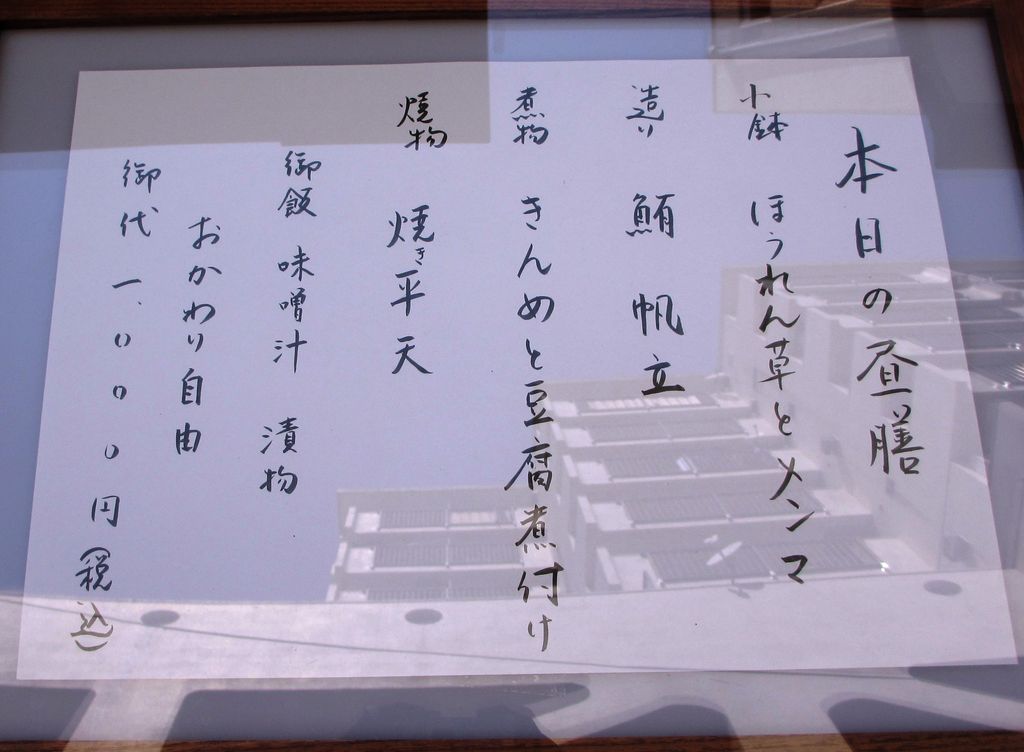 本日の昼膳
小鉢 ほうれん草とメンマ
造り 鮪 帆立
煮物 きんめと豆腐煮付け
焼物 焼き平天
御飯 味噌汁 漬物
おかわり自由
御代 一、〇〇〇円(税込)